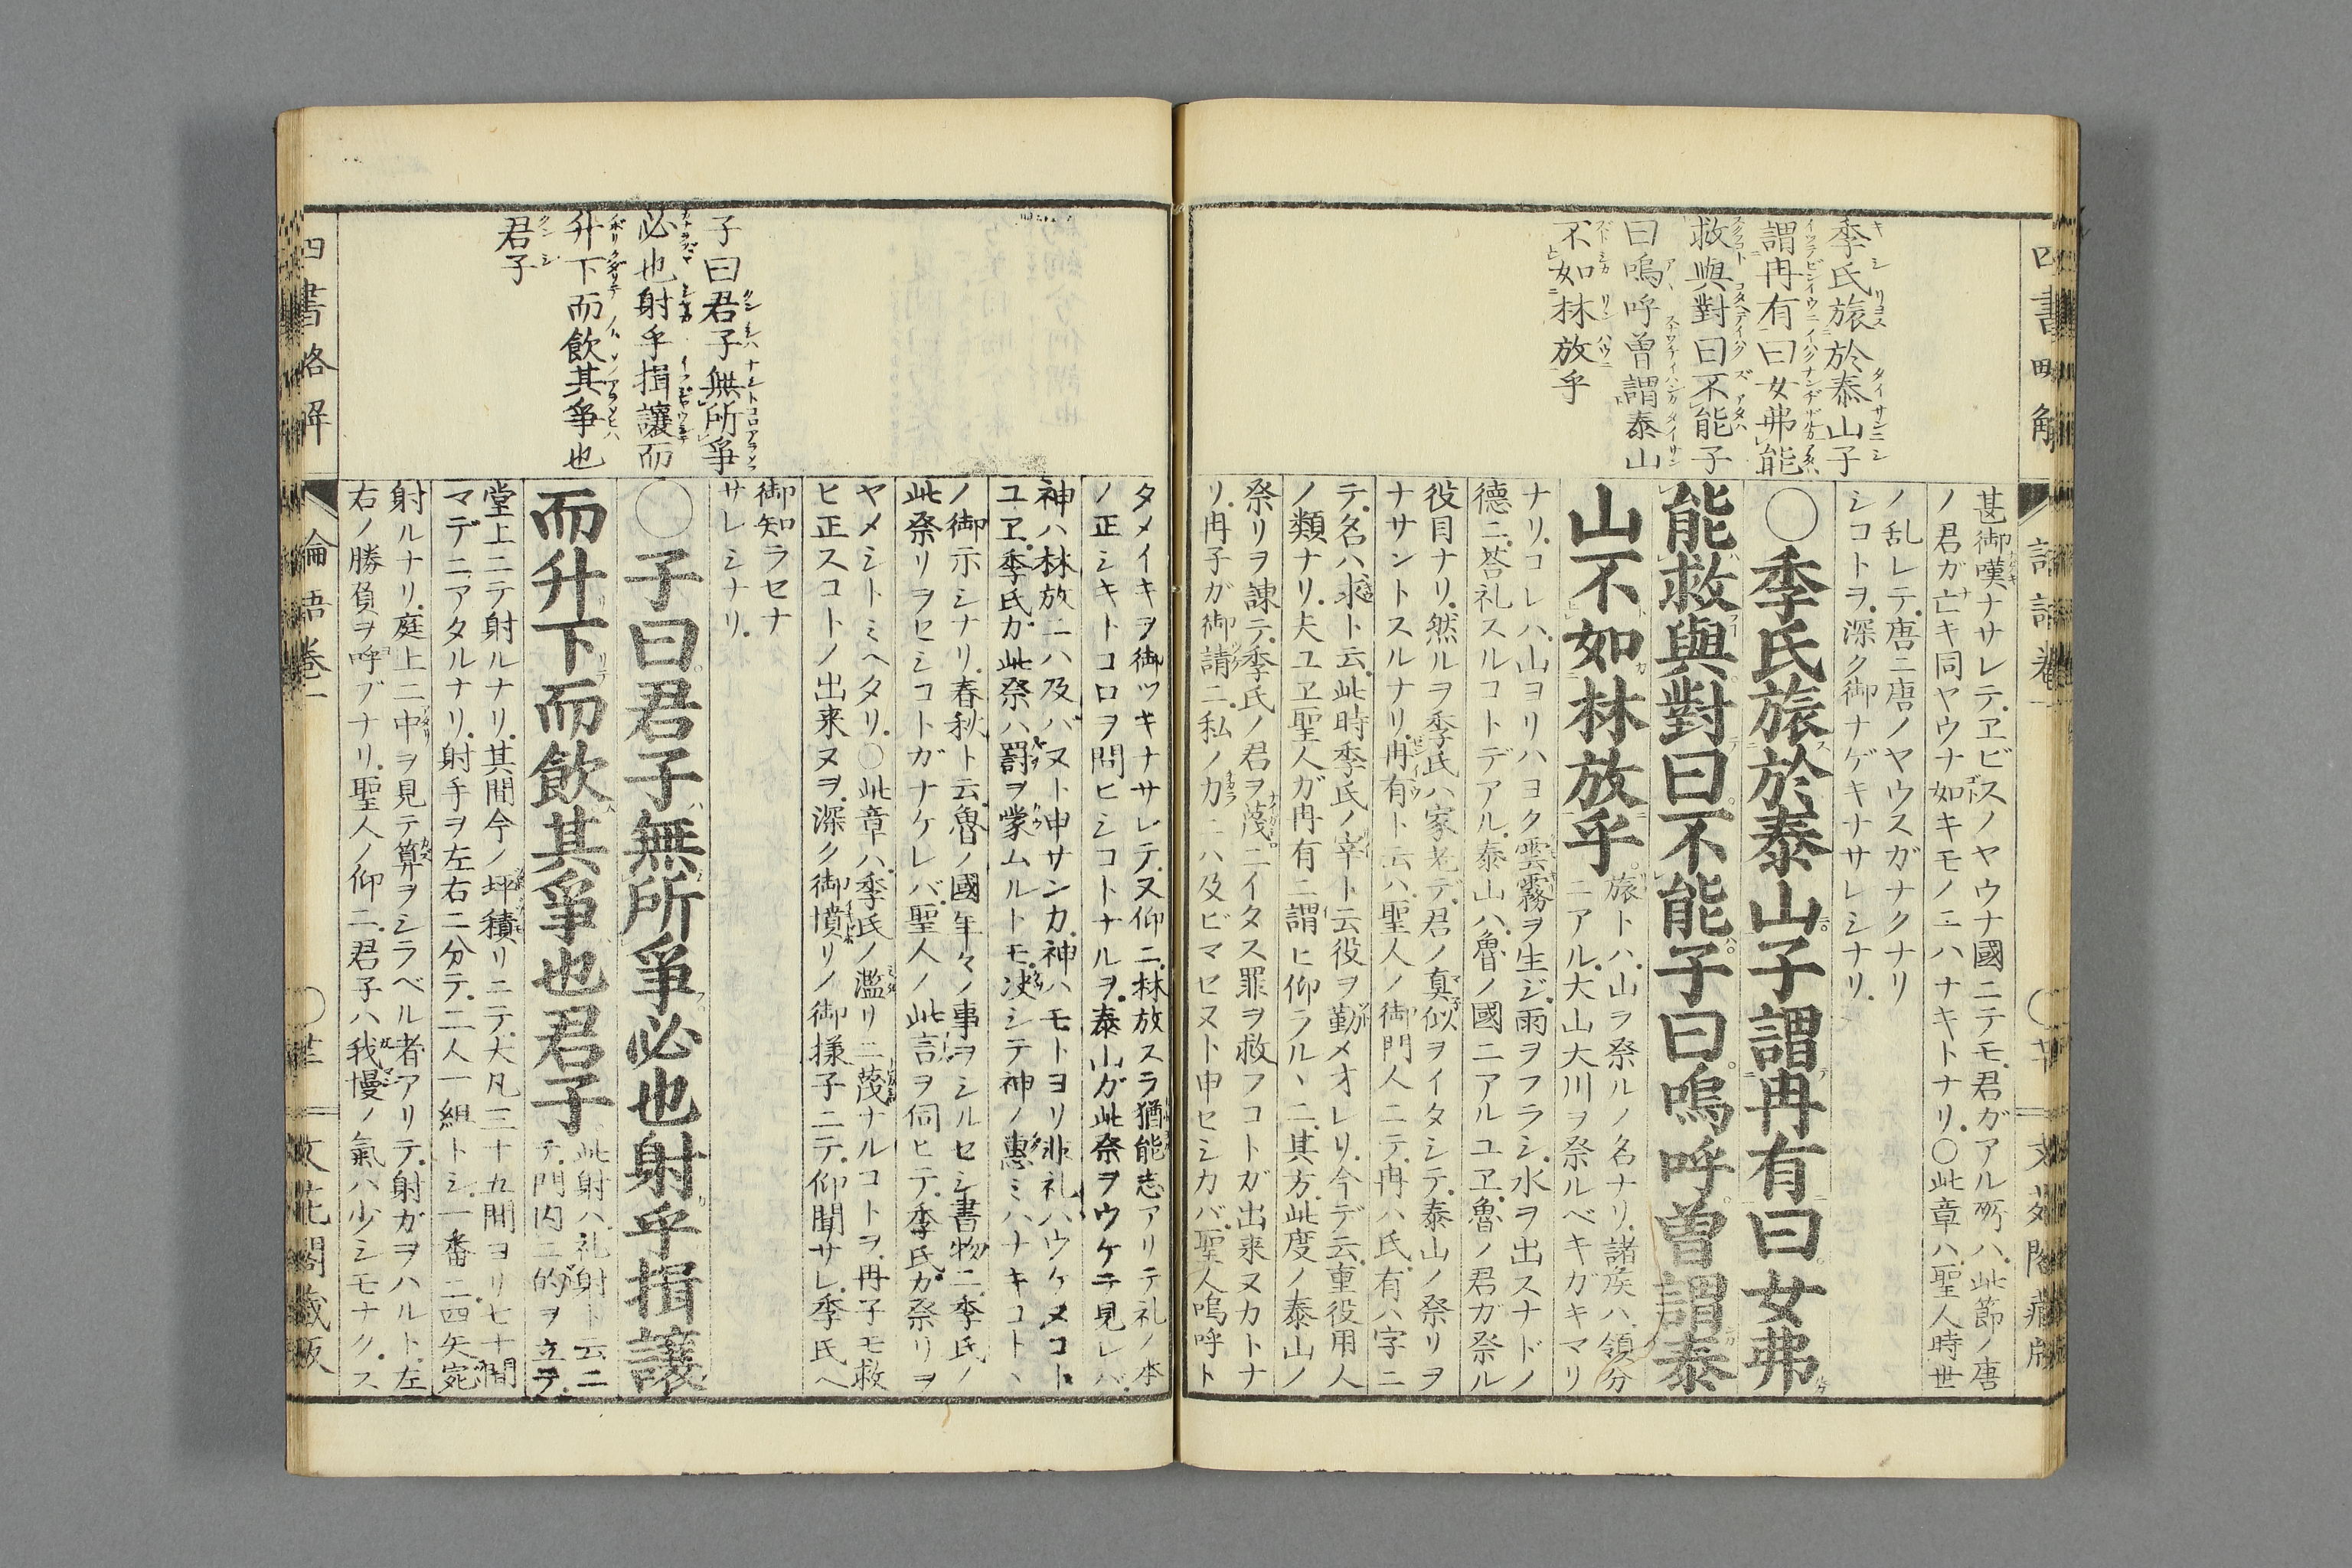 四書略解
季氏旅於泰山子
謂冉有曰女弗能
救與對曰不能子
曰嗚呼曽謂泰山
不如林放乎
甚御嘆ナサレテ、ヱビスノヤウナ國ニテモ、君ガアル所ハ、此節ノ唐
ノ君ガ亡キ同ヤウナ如キモノニハナキトナリ、○此章ハ、聖人時世
ノ乱レテ、唐ニ唐ノヤウスガナクナリ
シコトヲ、深ク御ナゲキナサレシナリ、
○季氏旅於泰山子謂冉有曰女弗
能救與對曰不能子曰嗚呼曽謂泰
山不如林放乎
旅トハ、山ヲ祭ルノ名ナリ、諸侯ハ、領分
ニアル、大山大川ヲ祭ルベキガキマリ
ナリ、コレハ、山ヨリハヨク雲霧ヲ生ジ、雨ヲフラシ、水ヲ出スナドノ
德ニ、荅礼スルコトデアル、泰山ハ、魯ノ國ニアルユヱ、魯ノ君ガ祭ル
役目ナリ、然ルヲ季氏ハ家老デ、君ノ真似ヲイタシテ、泰山ノ祭リヲ
ナサントスルナリ、冉有ト云ハ、聖人ノ御門人ニテ、冉ハ氏、有ハ字ニ
テ、名ハ求ト云、此時季氏ノ宰ト云役ヲ勤メオレリ、今デ云、重役用人
ノ類ナリ、夫ユヱ聖人ガ冉有ニ謂ヒ仰ラルヽニ、其方、此度ノ泰山ノ
祭リヲ諌テ、季氏ノ君ヲ蔑ニイタス罪ヲ救フコトガ出来ヌカトナ
リ、冉子ガ御請ニ、私ノ力ニハ及ビマセヌト申セシカバ、聖人嗚呼ト
子曰君子無所爭
必也射乎揖讓而
升下而飲其爭也
君子
タメイキヲ御ツキナサレテ、又仰ニ、林放スラ猶能志アリテ礼ノ本
ノ正シキトコロヲ問ヒシコトナルヲ、泰山ガ此祭ヲウケテ見レバ、
神ハ林放ニハ及バヌト申サンカ、神ハモトヨリ非礼ハウケヌコト
ユヱ、季氏ガ、此祭ハ罸ヲ蒙ムルトモ、决シテ神ノ惠ミハナキコトヽ
ノ御示シナリ、春秋ト云、魯ノ國年々ノ事ヲシルセシ書物ニ、季氏ノ
此祭リヲセシコトガナケレバ、聖人ノ此言ヲ伺ヒテ、季氏ガ祭リヲ
ヤメシトミヘタリ、○此章ハ、季氏ノ濫リニ蔑ナルコトヲ、冉子モ救
ヒ正スコトノ出来ヌヲ、深ク御憤リノ御様子ニテ、仰聞サレ、季氏ヘ
御知ラセナ
サレシナリ、
○子曰君子無所爭必也射乎揖讓
而升下而飲其爭也君子
此射ハ、礼射ト云ニ
テ、門内ニ的ヲ立テ、
堂上ニテ射ルナリ、其間今ノ坪積リニテ、大凡三十五間ヨリ七十間
マデニアタルナリ、射手ヲ左右ニ分テ、二人一組トシ、一番ニ四矢宛
射ルナリ、庭上ニ中ヲ見テ算ヲシラベル者アリテ、射ガヲハルト、左
右ノ勝負ヲ呼ブナリ、聖人ノ仰ニ、君子ハ我慢ノ氣ハ少シモナク、ス
四書略解
論語卷一
文花閣蔵版